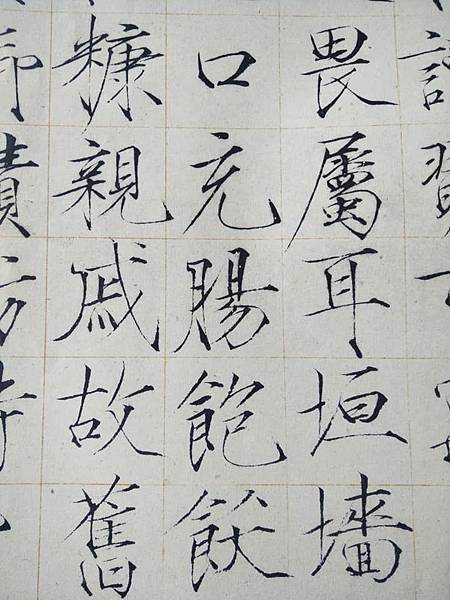 畏屬耳垣墻
口充腸飽飫
糠親戚故舊